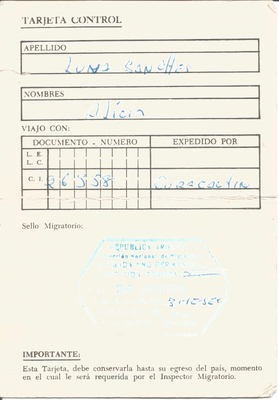 TARJETA CONTROL
APELLIDO
LUNA SANCHEZ
NOMBRES
Alicia
VIAJO CON:
DOCUMENTO - NUMERO EXPEDIDO POR
L. E.
L. C.
C. I. CURACAUTIN
Sello Migratorio:
IMPORTANTE:
Esta Tarjeta, debe conservarla hasta su egreso del país, momento
en el cual le será requerida por el Inspector Migratorio.